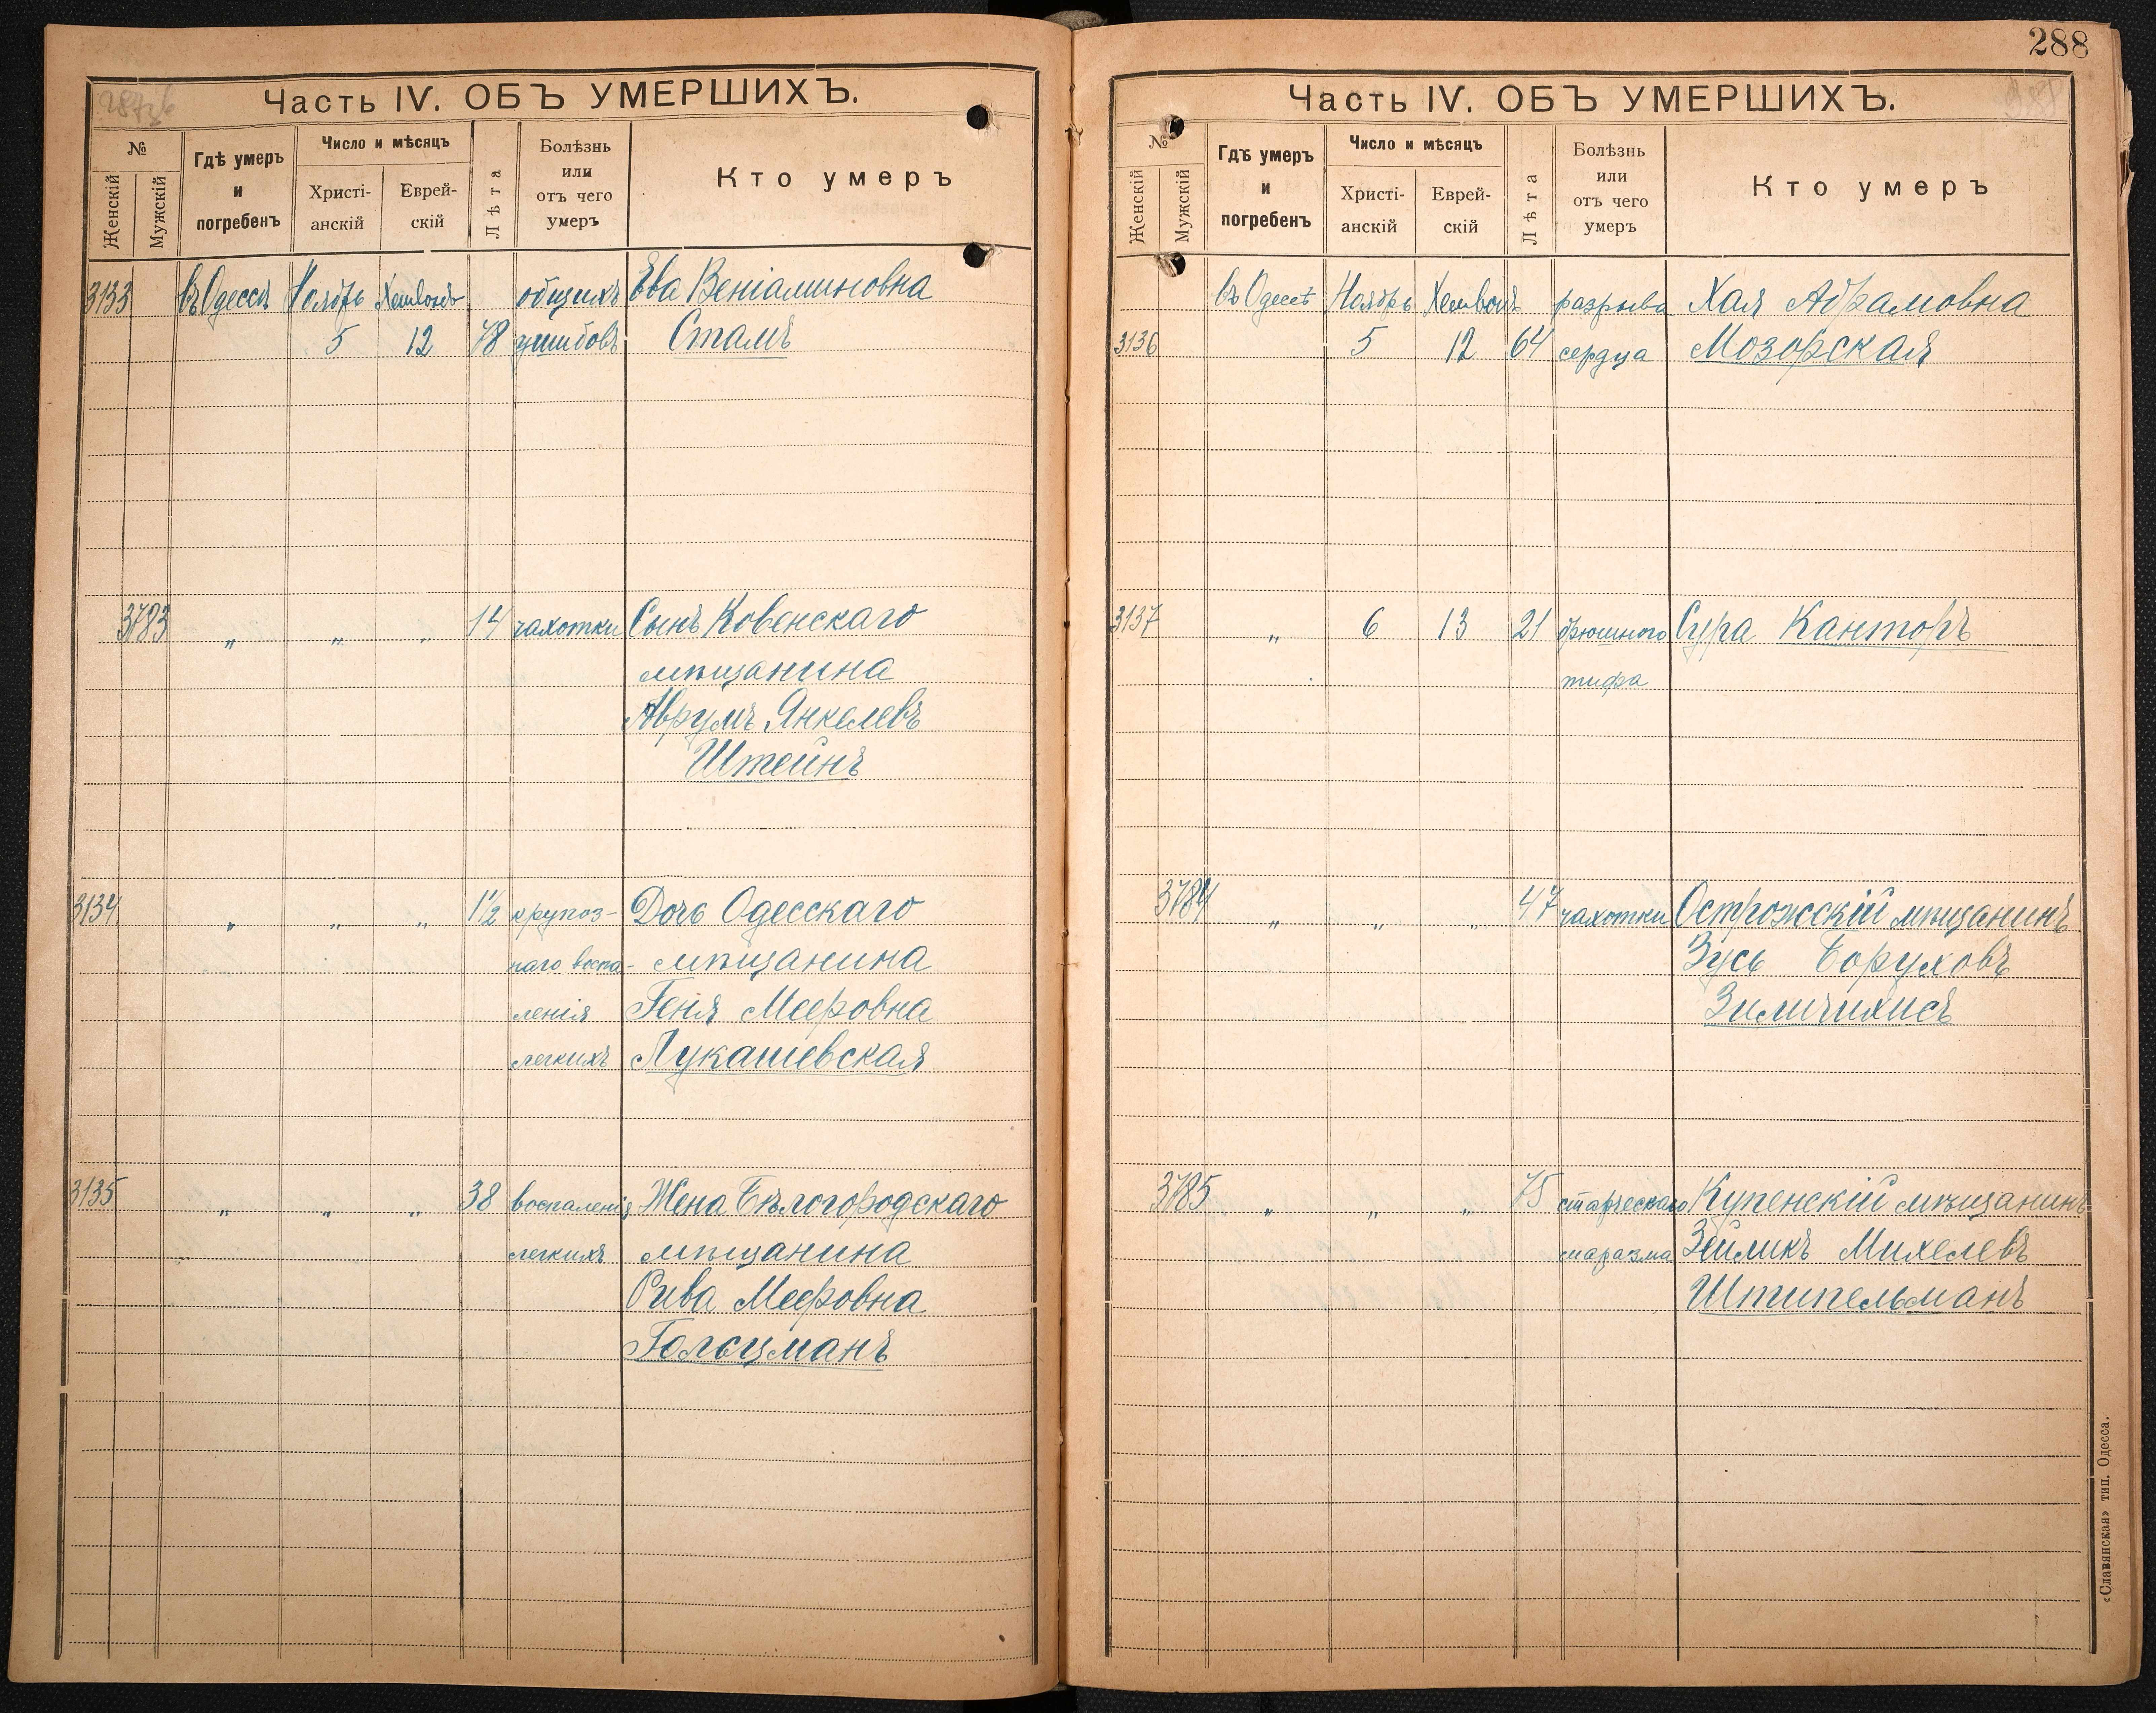 Часть IV. ОБЪ УМЕРШИХЪ.
№ Женскій Мужскій
Гдѣ умеръ и погребенъ
Число и мѣсяцъ
Христіанскій Еврейскій
Лѣта
Болѣзнь или отъ чего умеръ
Кто умеръ
3133 въ Одессѣ Ноябрь Хешвонъ общихъ Ева Веніаминовна
5 12 78 ушибовъ Сталъ
3783 „ „ „ 14 чахотки Сынъ Ковенскаго
мѣщанина
Аврумъ Янкелевъ
Штейнъ
3134 „ „ „ 1½ крупоз- Дочь Одесскаго
наго воспа- мѣщанина
ленія Геня Мееровна
легкихъ Лукашевская
3135 „ „ „ 38 воспаленія Жена Бѣлогородскаго
легкихъ мѣщанина
Рива Мееровна
Гольцманъ
288
Часть IV. ОБЪ УМЕРШИХЪ.
№ Женскій Мужскій
Гдѣ умеръ и погребенъ
Число и мѣсяцъ
Христіанскій Еврейскій
Лѣта
Болѣзнь или отъ чего умеръ
Кто умеръ
въ Одессѣ Ноябрь Хешвонъ разрыва Хая Абрамовна
3136 5 12 64 сердца Мозорская
3137 „ 6 13 21 брюшного Сура Канторъ
тифа
3784 „ „ „ 47 чахотки Острожскій мѣщанинъ
Зусь Боруховъ
Зиличихисъ
3785 „ „ „ 75 старческаго Купенскій мѣщанинъ
маразма Зейликъ Михелевъ
Штипельманъ
«Славянская» тип. Одесса.